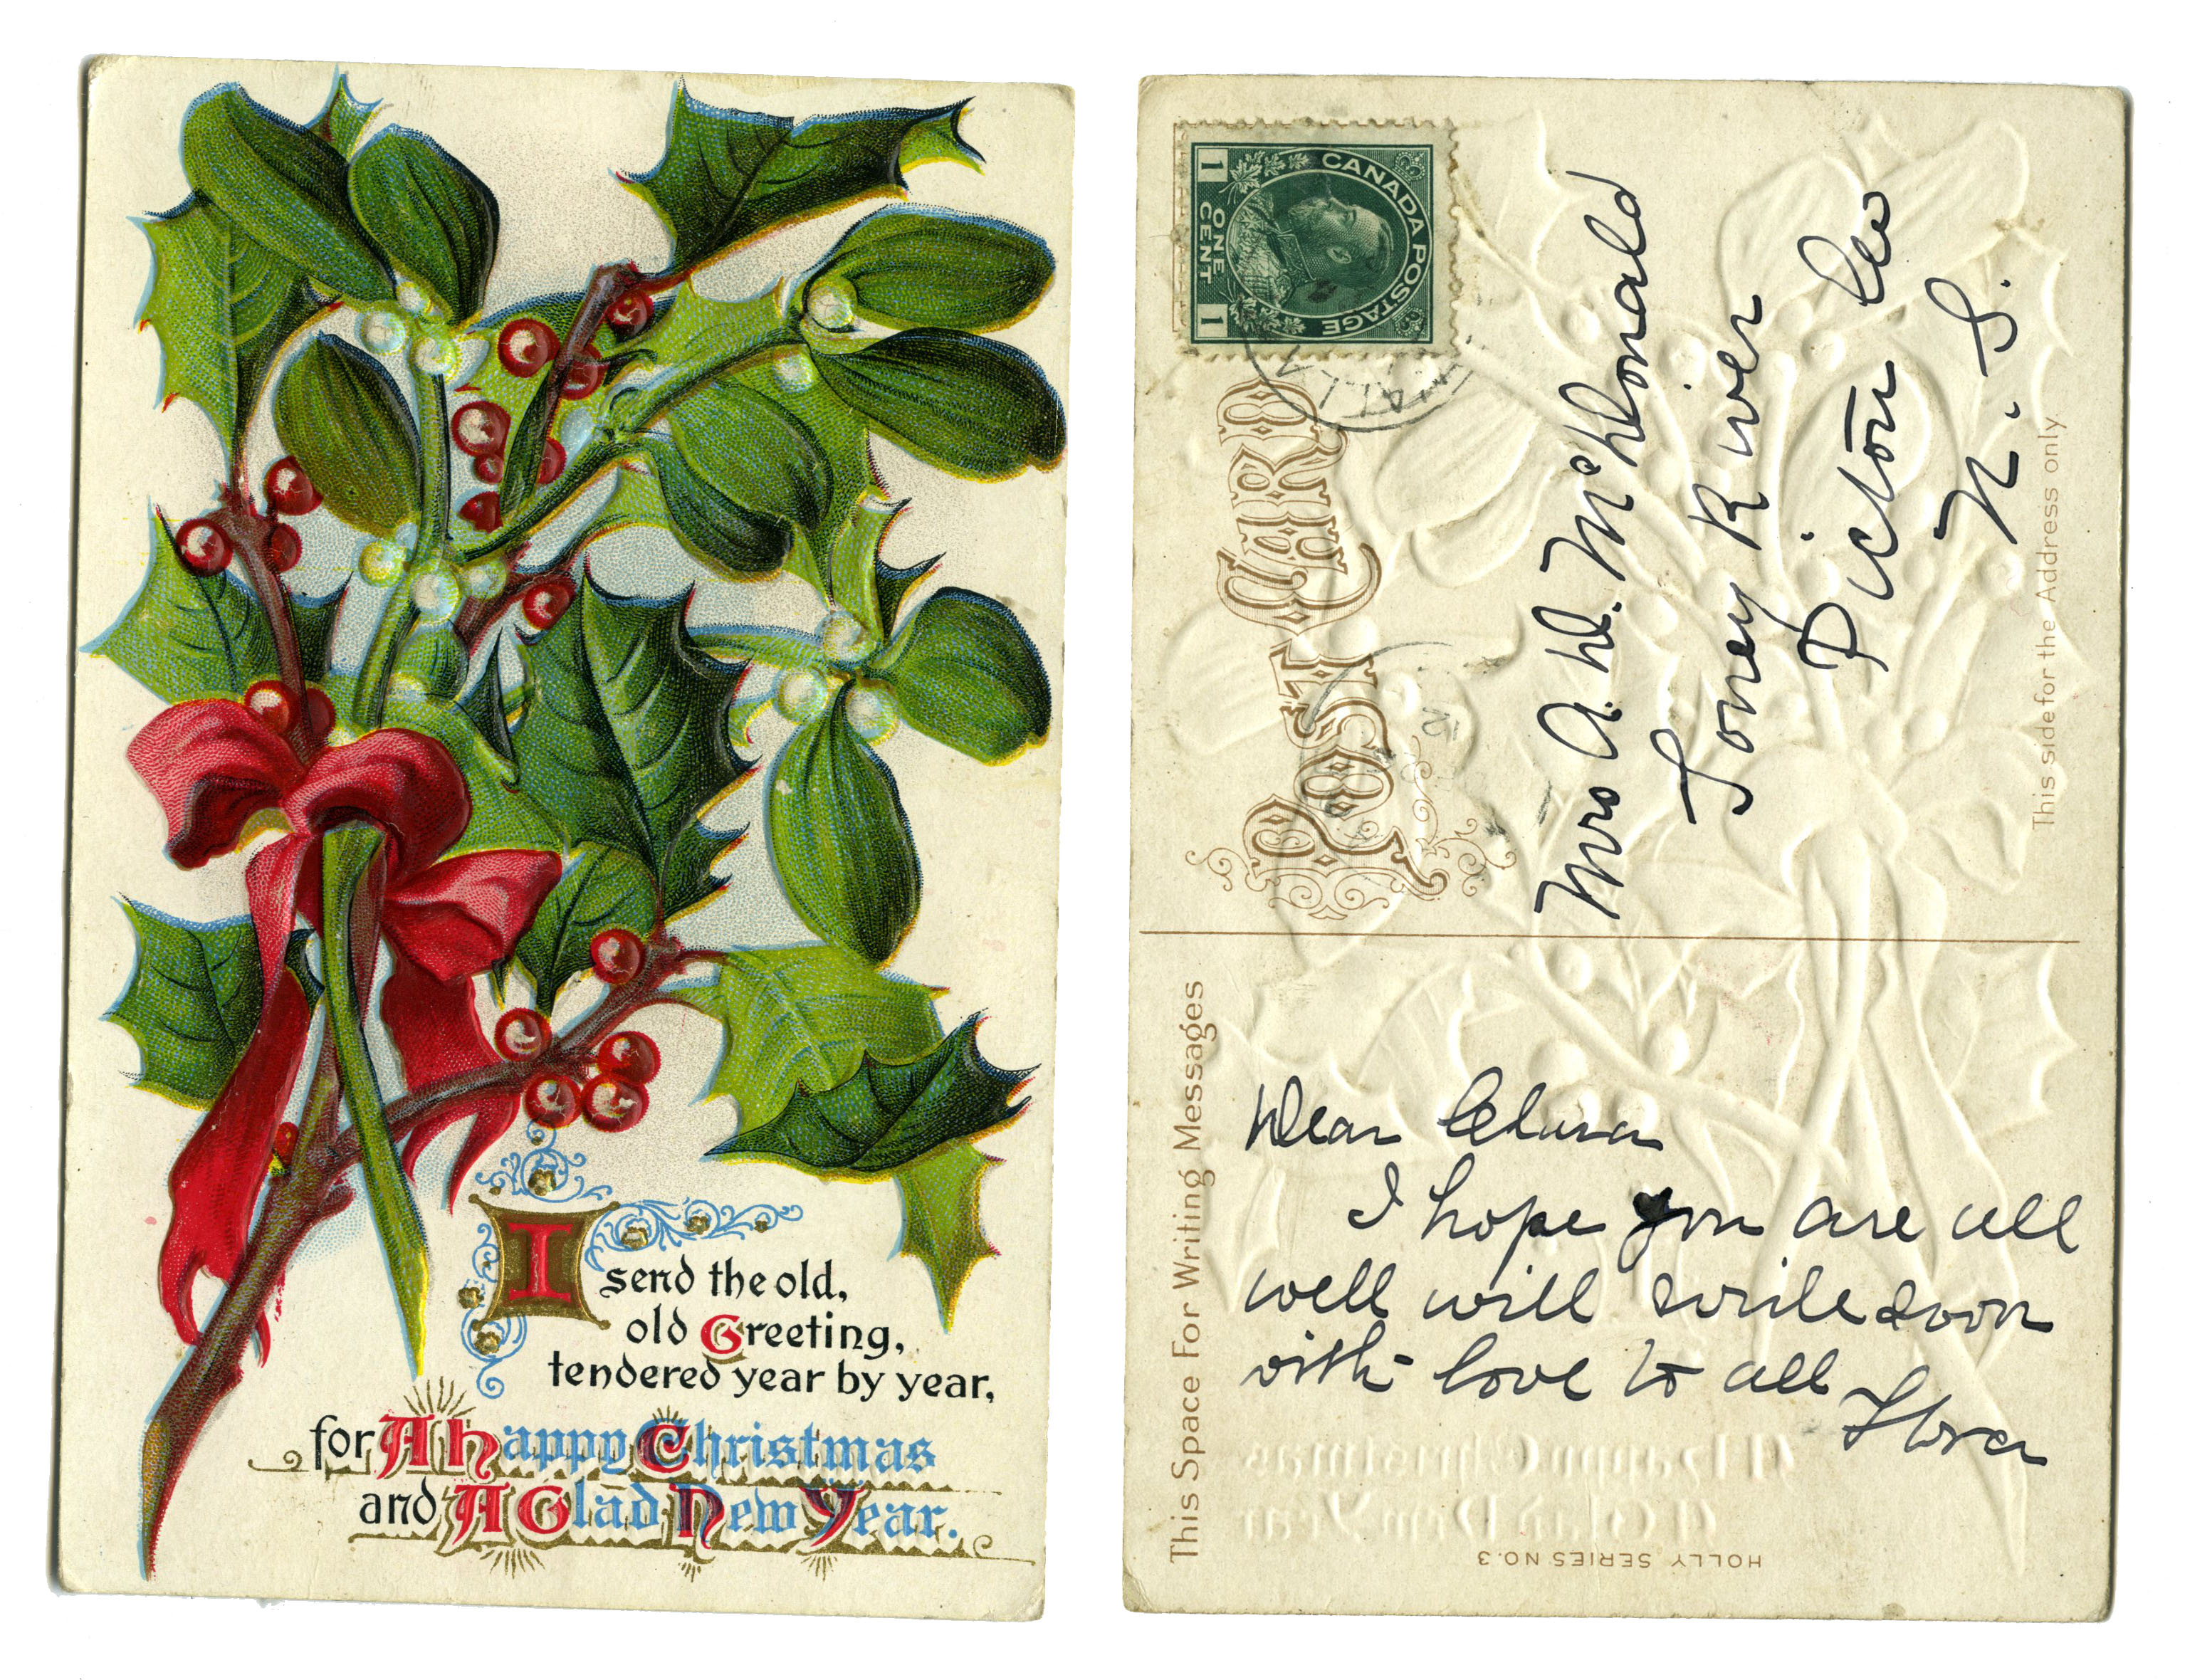 I send the old,
old Greeting,
tendered year by year,
for A happy Christmas
and A Glad New Year.
CANADA POSTAGE
1 ONE CENT 1
POST CARD
Mrs A. W. McDonald
Toney River
Pictou Co
N. S.
This side for the Address only
This Space For Writing Messages
Dear
I hope you are all
well will write soon
with love to all
Flora
HOLLY SERIES NO. 3